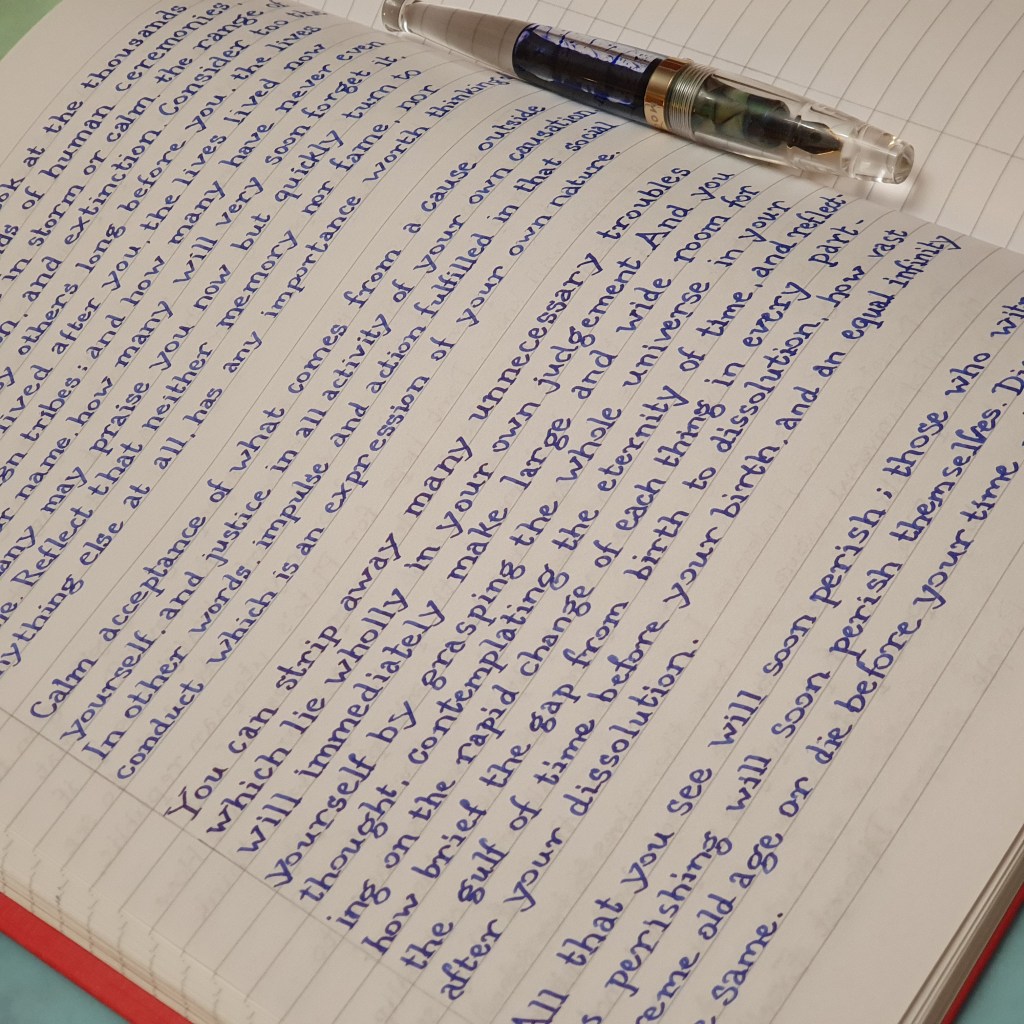 ook at the thousands
ds of human ceremonies,
in storm or calm, the range of
n, and extinction. Consider too the
by others long before you, the lives
lived after you, the lives lived now
ign tribes; and how many have never even
r name, how many will very soon forget it,
any may praise you now but quickly turn to
e. Reflect that neither memory nor fame, nor
anything else at all, has any importance worth thinking
Calm acceptance of what comes from a cause outside
yourself, and justice in all activity of your own causation.
In other words, impulse and action fulfilled in that social
conduct which is an expression of your own nature.
You can strip away many unnecessary troubles
which lie wholly in your own judgement. And you
will immediately make large and wide room for
yourself by grasping the whole universe in your
thought, contemplating the eternity of time, and reflect-
ing on the rapid change of each thing in every part-
how brief the gap from birth to dissolution, how vast
the gulf of time before your birth, and an equal infinity
after your dissolution.
All that you see will soon perish; those who
perishing will soon perish themselves.
reme old age or die before your time
same.